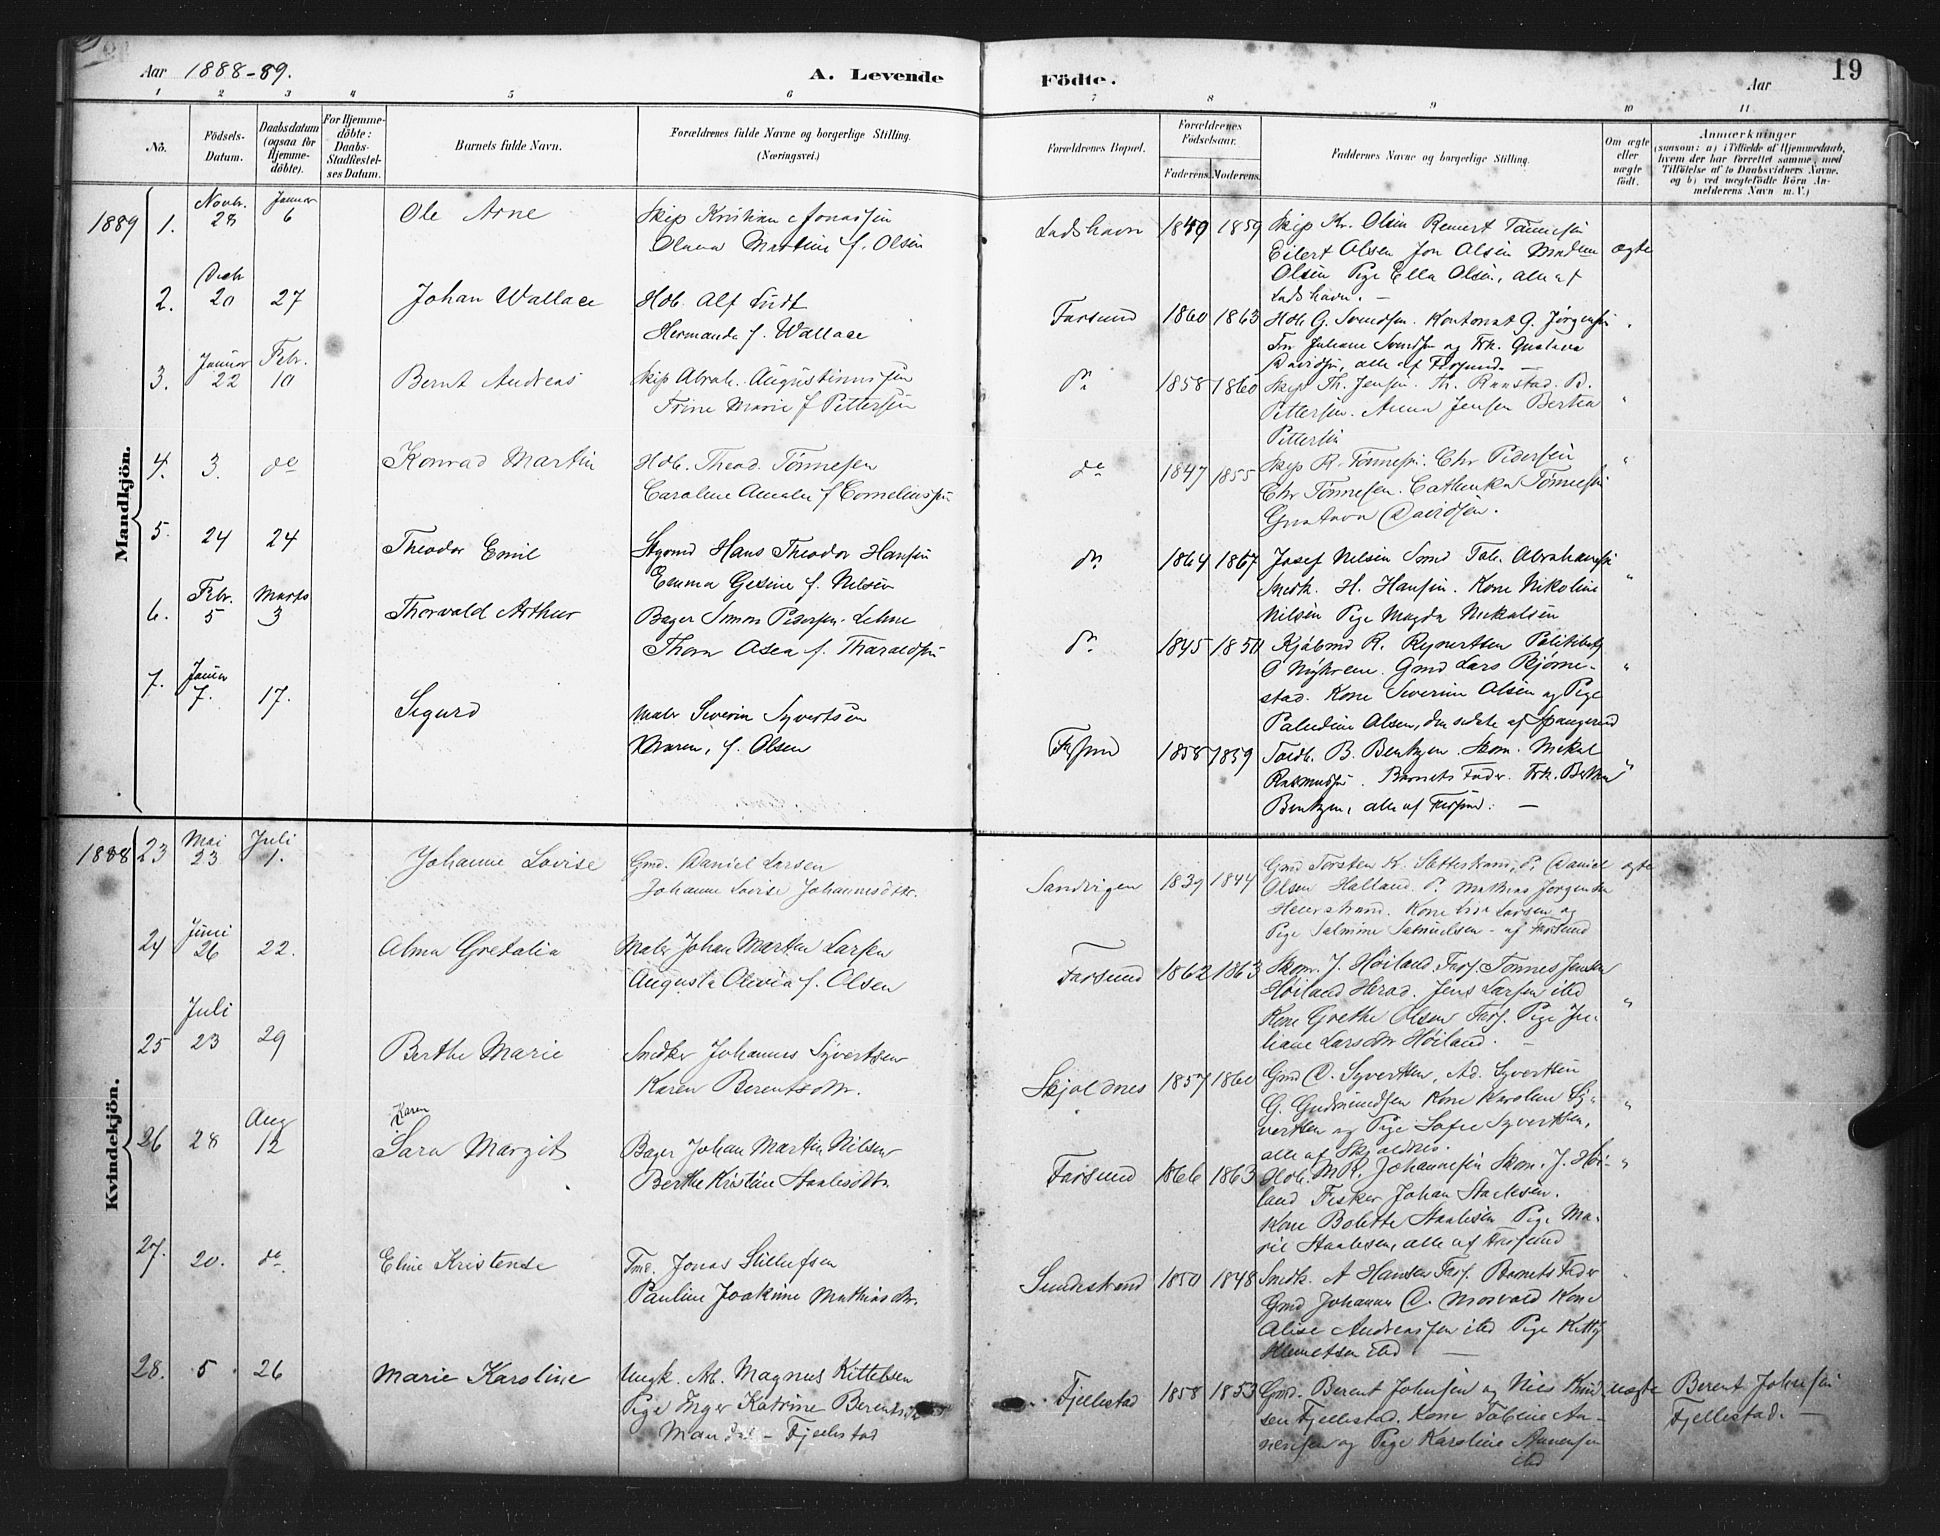 Aar 1888-89.
A. Levende
Födte.
Aar
19
1 2 3 4 5 6 7 8 9 10 11
No.
Födsels-
Datum.
Daabsdatum
(ogsaa for
Hjemme-
döbte).
For Hjemme-
döbte:
Daabs-
Stadfæstel-
ses Datum.
Barnets fulde Navn.
Forældrenes fulde Navne og borgerlige Stilling.
(Næringsvei.)
Forældrenes Bopæl.
Forældrenes
Födselsaar.
Faderens. Moderens.
Faddernes Navne og borgerlige Stilling.
Om ægte
eller
uægte
födt.
Anmærkninger
(saasom: a) i Tilfælde af Hjemmedaab,
hvem der har forrettet samme, med
Tilföielse af to Daabsvidners Navne.
og b) ved uægtefödte Börn An-
melderens Navn m. V.)
Mandkjön.
1889 1. Novbr. 28 Januar 6 Ole Arne
Skip Kristian Jonassen
Olava Martine f. Olsen
Ladshavn 1849 1859
Skip Kr. Olsen Reinert Tønnesen
Eilert Olsen Jon Olsen Madam
Olsen Pige Ella Olsen, alle af
Ladshavn. —
ægte
2. Decb 20 27 Johan Wallace
Hdb. Alf Lüdt
Hermande f. Wallace
Farsund 1860 1863
Hdb G. Svendsen. Kontorist G. Jørgensen
Fru Juliane Svendsen og Frk. Gustava
Davidsen, alle af Farsund. —
"
3. Januar 22 Febr. 10 Bernt Andreas
Skip Abrah. Augustinussen
Trine Marie f Pettersen
do 1858 1860
Skip Th. Jensen. Th. Runstad. B.
Pettersen. Anna Jensen Bertea
Pettersen
"
4. 3. do Konrad Martin
Hdb. Theod. Tönnesen
Caroline Amalie f Corneliussen
do 1847 1855
Skip R. Tönnesen. Chr Pedersen
Chr Tönnesen. Cathinka Tönnesen
Gustava Davidsen.
"
5. 24 24 Theodor Emil
Styrmd Hans Theodor Hansen
Emma Gesine f. Nilsen
do 1864 1867
Josef Nilsen Smd Tob. Abrahamsen
Snedk. H. Hansen. Kone Nikoline
Nilsen Pige Magda Mickalsen
"
6. Febr. 5 Marts 3 Thorvald Arthur
Bager Simon Pedersen Lehne
Thora Asea f. Tharaldsen
do 1845 1850
Kjöbmd R. Reinertsen Politibetj
O Myhrene. Gmd Lars Bjørne-
stad. Kone Severine Olsen og Pige
Paludine Olsen, den sidste af Spangereid
"
7. Januar 7. 17. Sigurd
Maler Severin Syvertsen
Maren, f. Olsen
Fssund 1858 1859
Toldb. B. Bentzen. Skom. Mekal
Rasmussen. Barnets Fader. Frk. Berthea
Bentzen, alle af Farsund: —
"
Kvindekjön.
1888 23 Mai 23 Juli 1. Johanne Lovise
Gmd. Daniel Larsen
Johanne Lovise Johannesdtr.
Sandvigen 1839 1844
Gmd Torsten K. Slettestrand, do Daniel
Olsen Halland. do Mathias Jørgensen
Heierstrand. Kone Lisa Larsen og
Pige Salmine Samuelsen - af Farsund
ægte
24 Juni 26 22. Alma Gretalia
Maler Johan Martin Larsen
Augusta Olivia f. Olsen
Farsund 1862 1863
Skom. J. Høiland Fars. Tonnes Jensen
Høiland Herad. Jens Larsen ibd
Kone Grethe Olsen Fars. Pige Ju-
liane Larsdtr Høiland. —
"
25 Juli 23 29 Berthe Marie
Snedker Johannes Syvertsen
Karen Berentsdtr.
Skjoldnes 1857 1860
Gmd O. Syvertsen, Ad. Syvertsen
G. Gudmundsen Kone Karoline Sy-
vertsen og Pige Sofie Syvertsen,
alle af Skjoldnes.
"
26 28 Aug 12 Karen
Sara Margit
Bager Johan Martin Nilsen
Berthe Kristine Staalesdtr
Farsund 1866 1863
Hdb. M.R. Johannesen Skom. J. Høi-
land Fisker Johan Stalesen.
Kone Bolette Staalesen Pige Ma-
rie Staalesen, alle af Farsund
"
27. 20. do Eline Kristense
Tmd. Jonas Stillufsen
Pauline Joakime Mathiasdtr.
Sundestrand 1850 1848
Snedk. A Hansen Fars. Barnets Fader
Gmd Johannes O. Mosvold Kone
Alise Andreassen ibd Pige Kitty
Helmetsen ibd. —
"
28. 5 26 Marie Karoline
Ungk. Arb. Magnus Kittelsen
Pige Inger Katrine Berentsdtr
Mandal - Fjellestad
Fjellestad 1858 1853
Gmd. Berent Johnsen og Nils Knud
sen Fjellestad. Kone Tobine An-
nensen og Pige Karoline Annensen
ibd
uægte
Berent Johnsen
Fjellestad. —